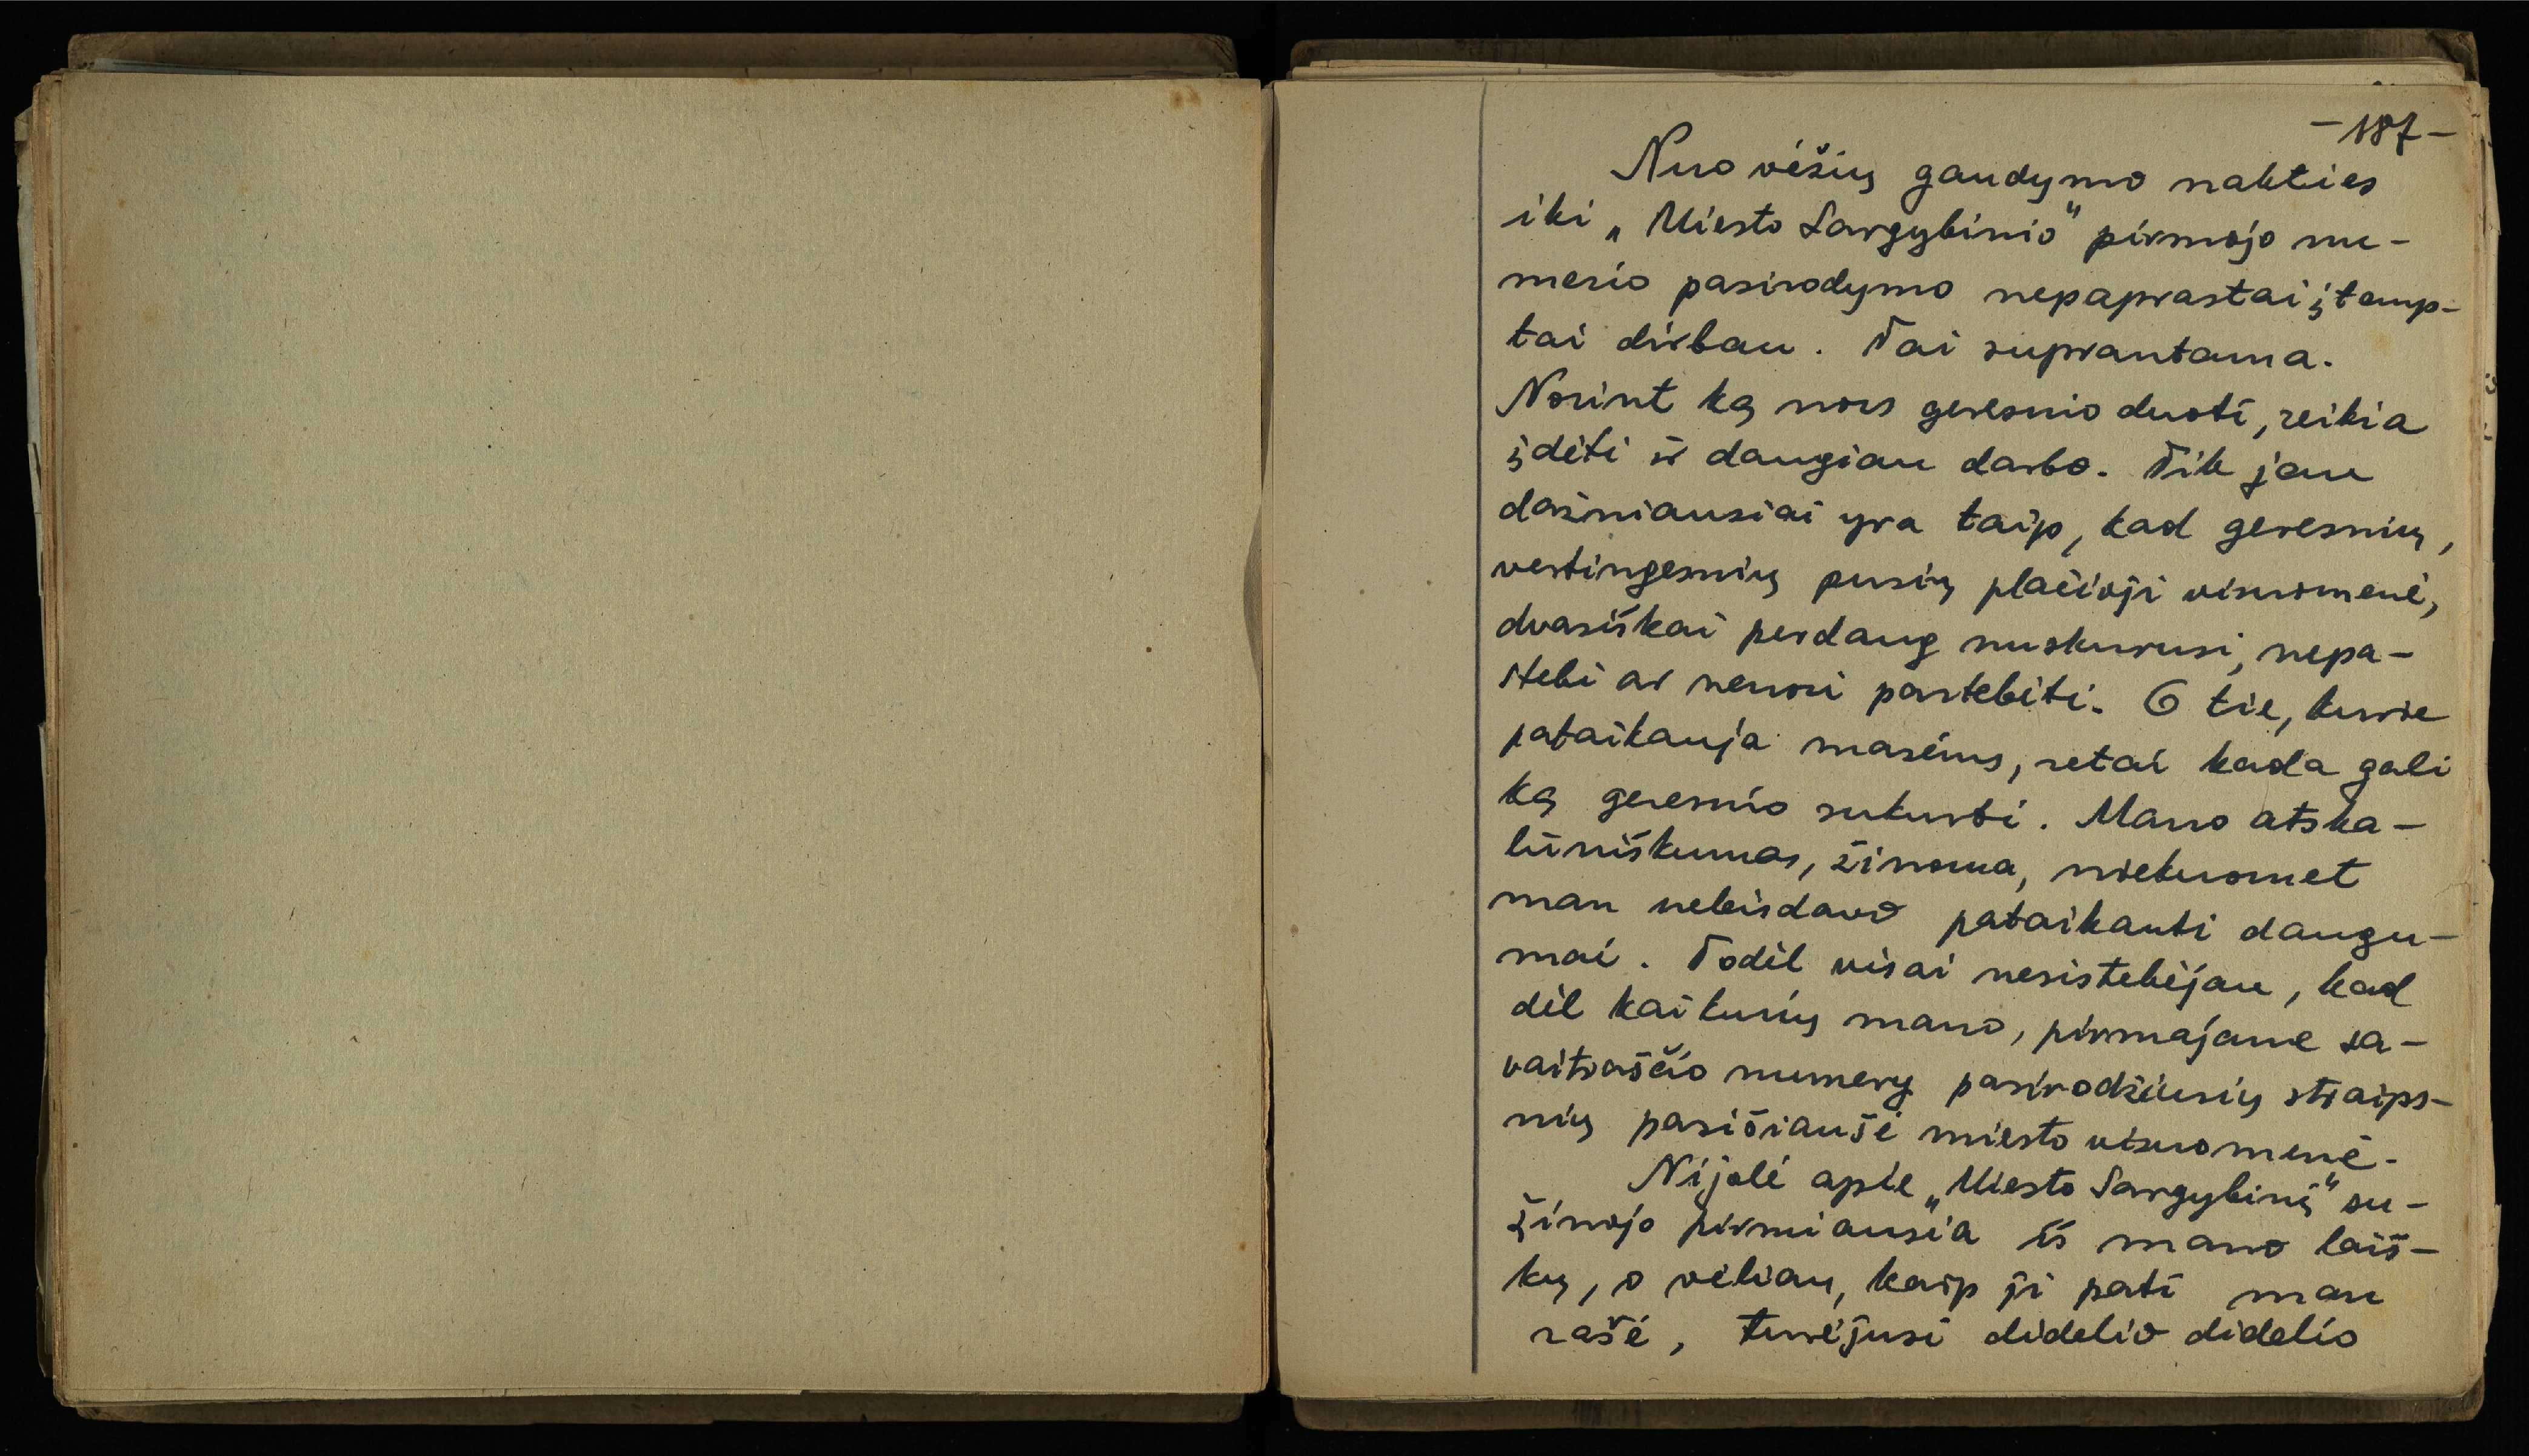 -187-
Nuo vėžių gaudymo nakties
iki „Miesto Sargybinio" pirmojo nu-
merio pasirodymo nepaprastai įtemp-
tai dirbau. Tai suprantama.
Norint ką nors geresnio duoti, reikia
įdėti ir daugiau darbo. Tik jau
dažniausiai yra taip, kad geresnių,
vertingesnių pusių plačioji visuomenė,
dvasiškai perdaug nuskurusi, nepa-
stebi ar nenori pastebėti. O tie, kurie
pataikauja masėms, retai kada gali
ką geresnio sukurti. Mano atska-
lūniškumas, žinoma, niekuomet
man neleisdavo pataikauti daugu-
mai. Todėl visai nesistebėjau, kad
dėl kaikurių mano, pirmajame sa-
vaitraščio numery pasirodžiusių straips-
nių pasišiaušė miesto visuomenė.
Nijolė apie „Miesto Sargybinį" su-
žinojo pirmiausia iš mano laiš-
kų, o vėliau, kaip ji pati man
rašė, turėjusi didelio didelio